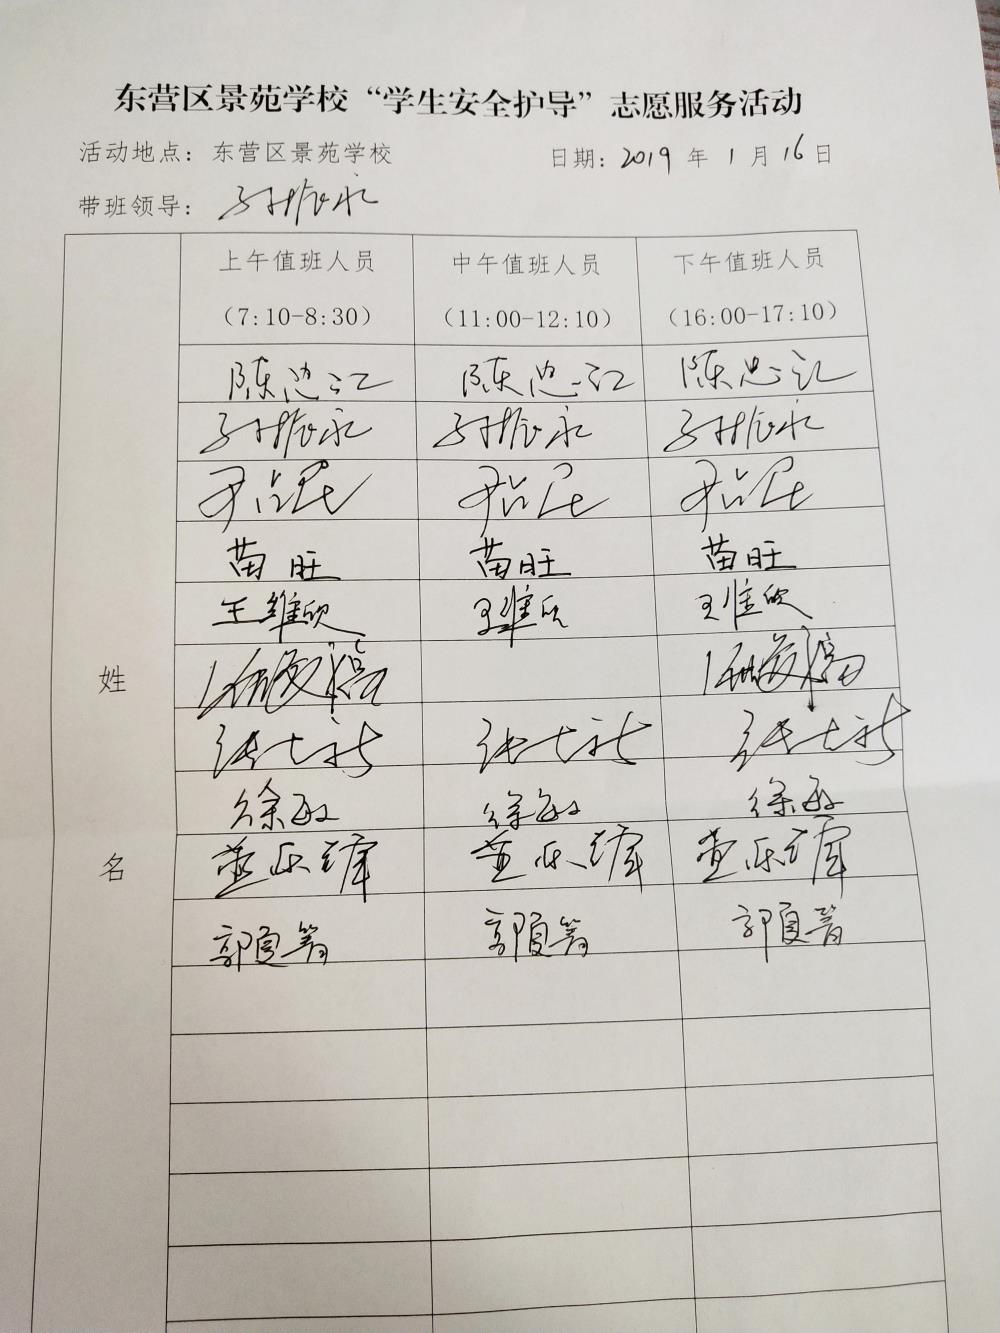 东营区景苑学校“学生安全护导”志愿服务活动
活动地点：东营区景苑学校 日期：2019 年 1 月 16 日
带班领导：孙振永
上午值班人员 中午值班人员 下午值班人员
（7:10-8:30） （11:00-12:10） （16:00-17:10）
陈忠江 陈忠江 陈忠江
孙振永 孙振永 孙振永
苗旺 苗旺 苗旺
王维欣 王维欣 王维欣
姓
张士新 张士新 张士新
徐敏 徐敏 徐敏
名
董乐 董乐 董乐
郭夏箐 郭夏箐 郭夏箐